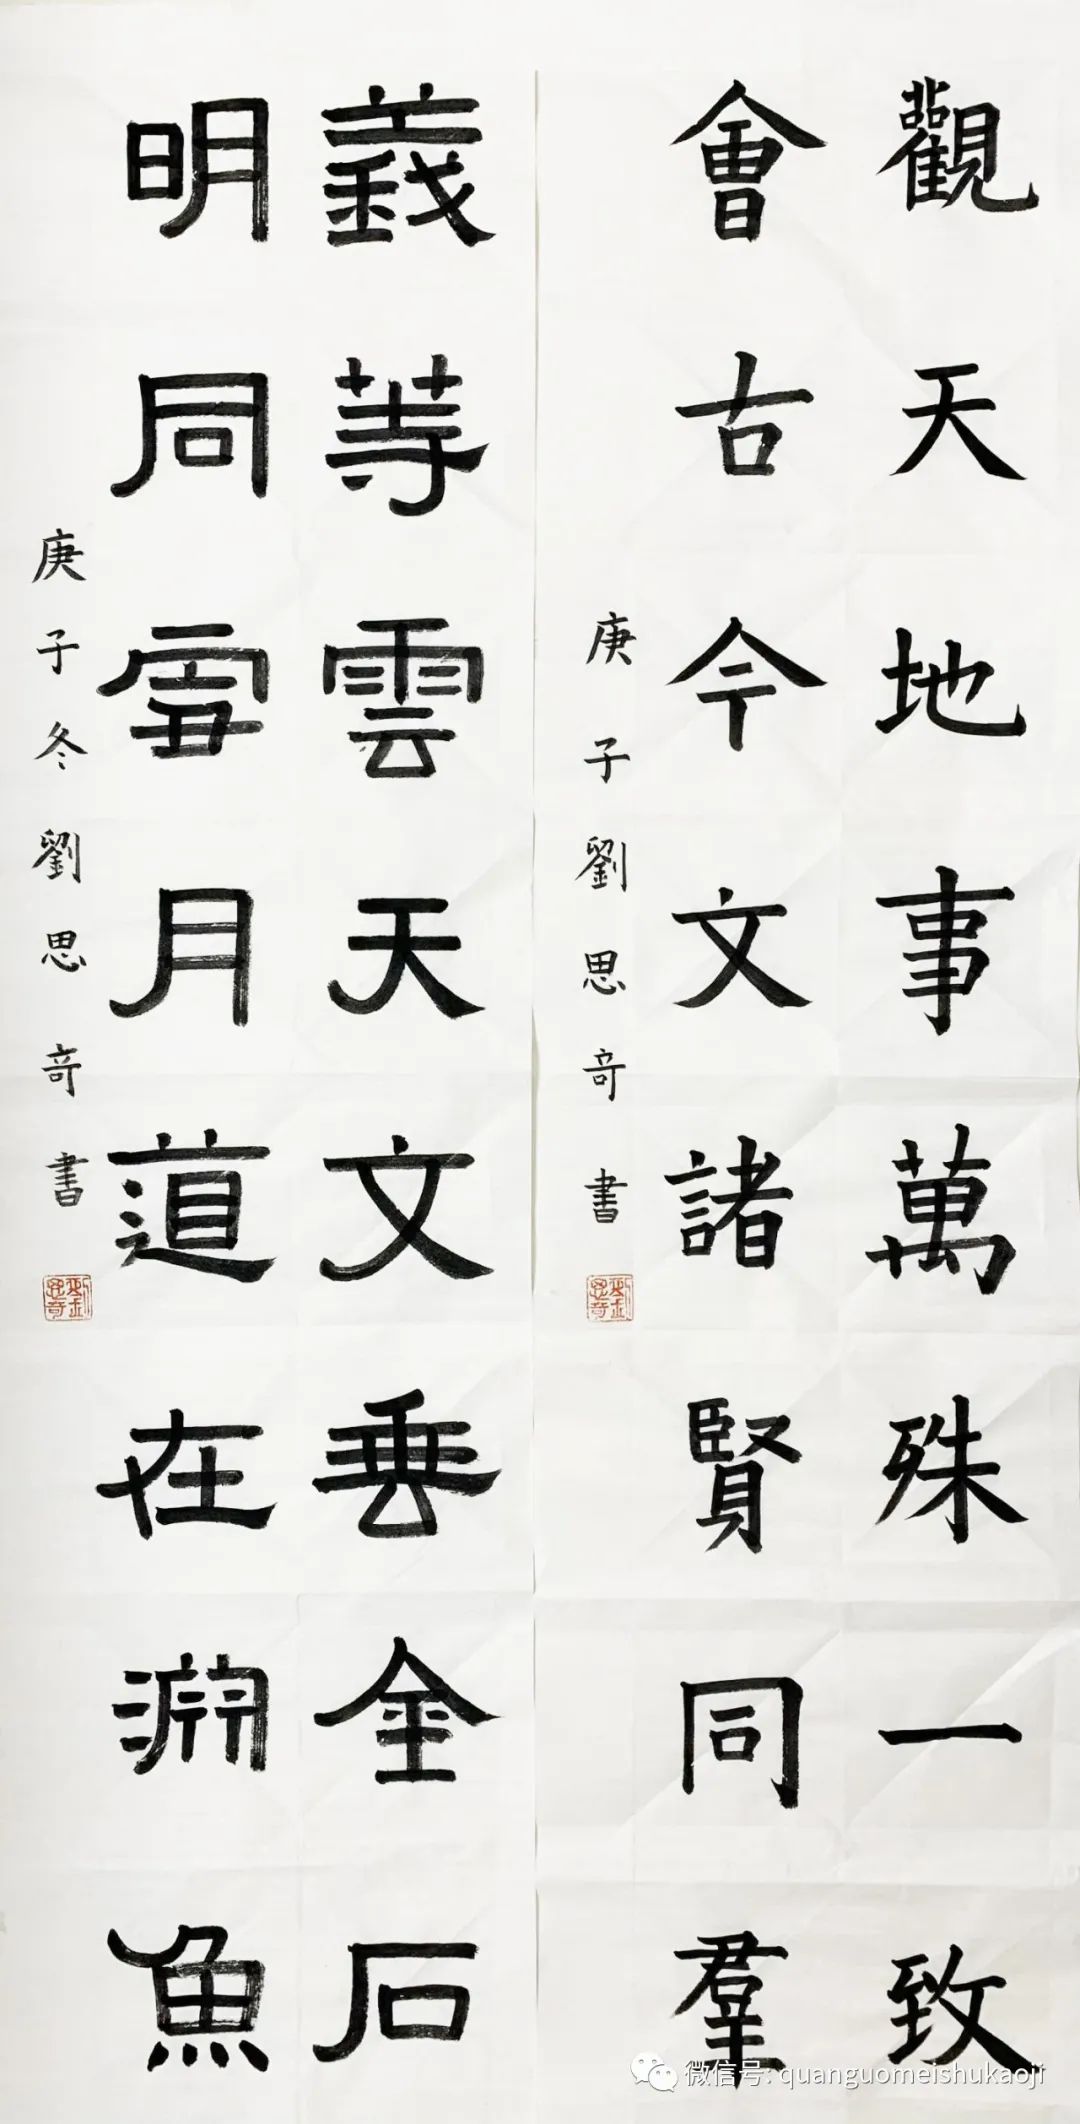 觀天地事萬殊一致
會古今文諸賢同羣
庚子劉思奇書
劉思奇
義等雲天文垂金石
明同雪月道在淵魚
庚子冬劉思奇書
劉思奇
微信号: quanguomeishukaoji